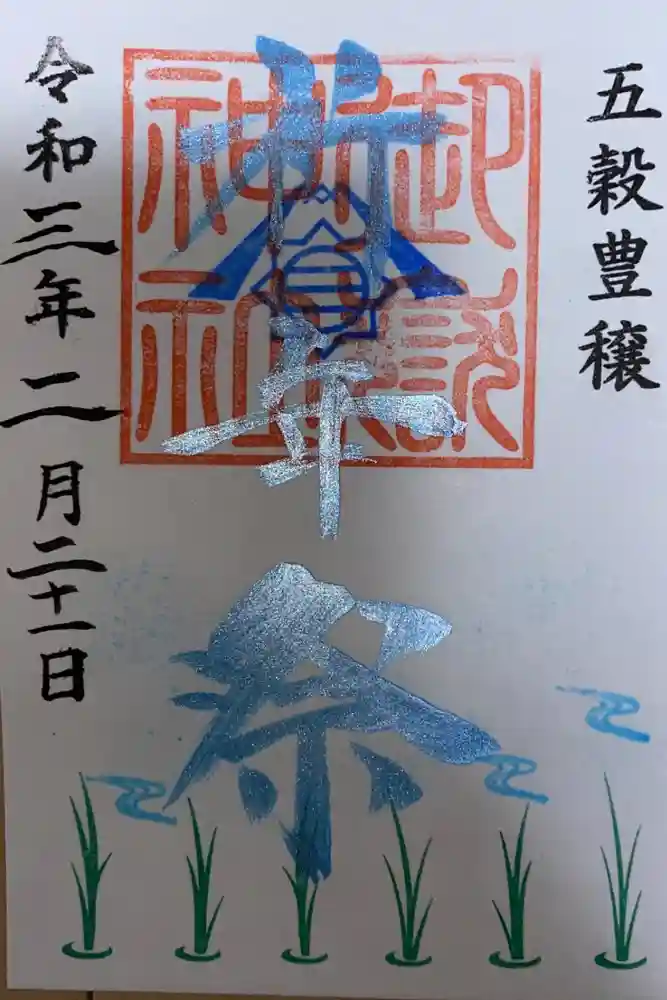 五穀豊穣
祈年祭
令和三年二月二十一日